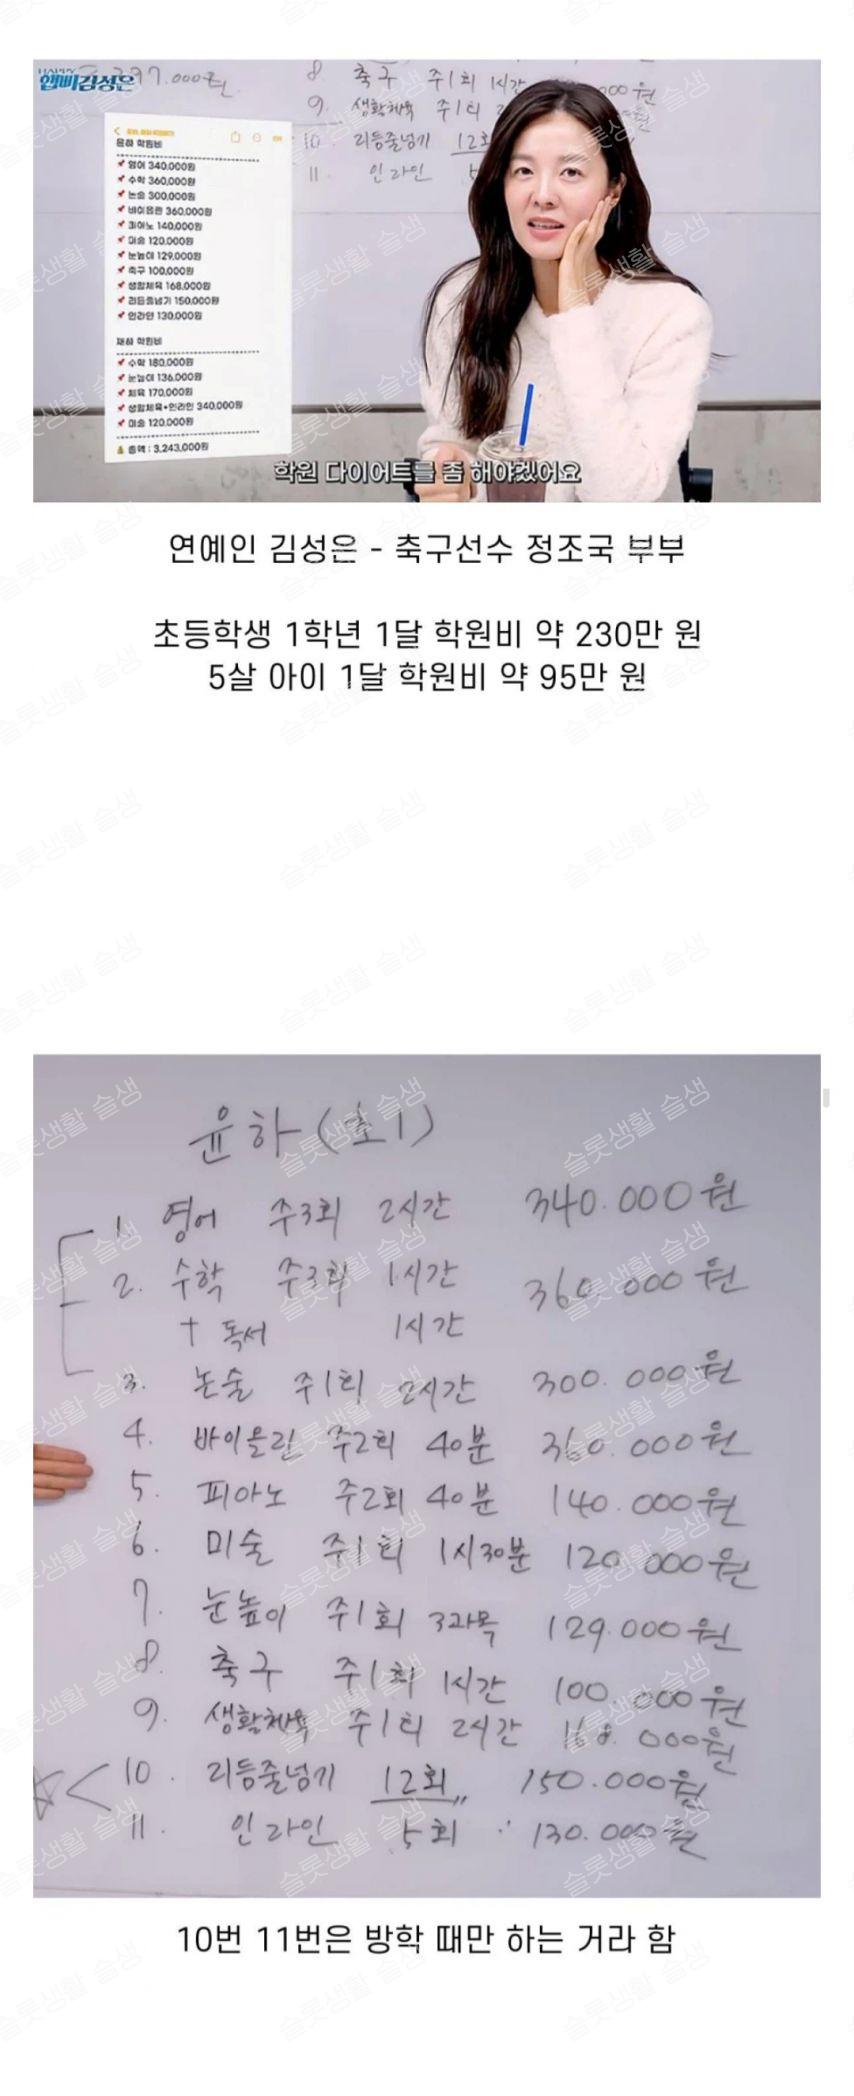 HAPPY
햅삐김성은
397.000원
8. 축구 주1회 1시간 000원
9. 생활체육 주1회
10 리듬줄넘기 12회
11. 인라인
윤하 학원비
영어 340,000원
수학 360,000원
논술 300,000원
바이올린 360,000원
피아노 140,000원
미술 120,000원
눈높이 129,000원
축구 100,000원
생활체육 168,000원
리듬줄넘기 150,000원
인라인 130,000원
재하 학원비
수학 180,000원
눈높이 136,000원
체육 170,000원
생활체육+인라인 340,000원
미술 120,000원
총액 : 3,243,000원
학원 다이어트를 좀 해야겠어요
연예인 김성은 - 축구선수 정조국 부부
초등학생 1학년 1달 학원비 약 230만 원
5살 아이 1달 학원비 약 95만 원
윤하(초1)
1. 영어 주3회 2시간 340.000원
2. 수학 주3회 1시간 360.000원
+ 독서 1시간
3. 논술 주1회 2시간 300.000원
4. 바이올린 주2회 40분 360.000원
5. 피아노 주2회 40분 140.000원
6. 미술 주1회 1시30분 120.000원
7. 눈높이 주1회 3과목 129.000원
8. 축구 주1회 1시간 100.000원
9. 생활체육 주1회 2시간 168.000원
10. 리듬줄넘기 12회 150.000원
11. 인라인 5회 130.000원
10번 11번은 방학 때만 하는 거라 함
슬롯생활 슬생